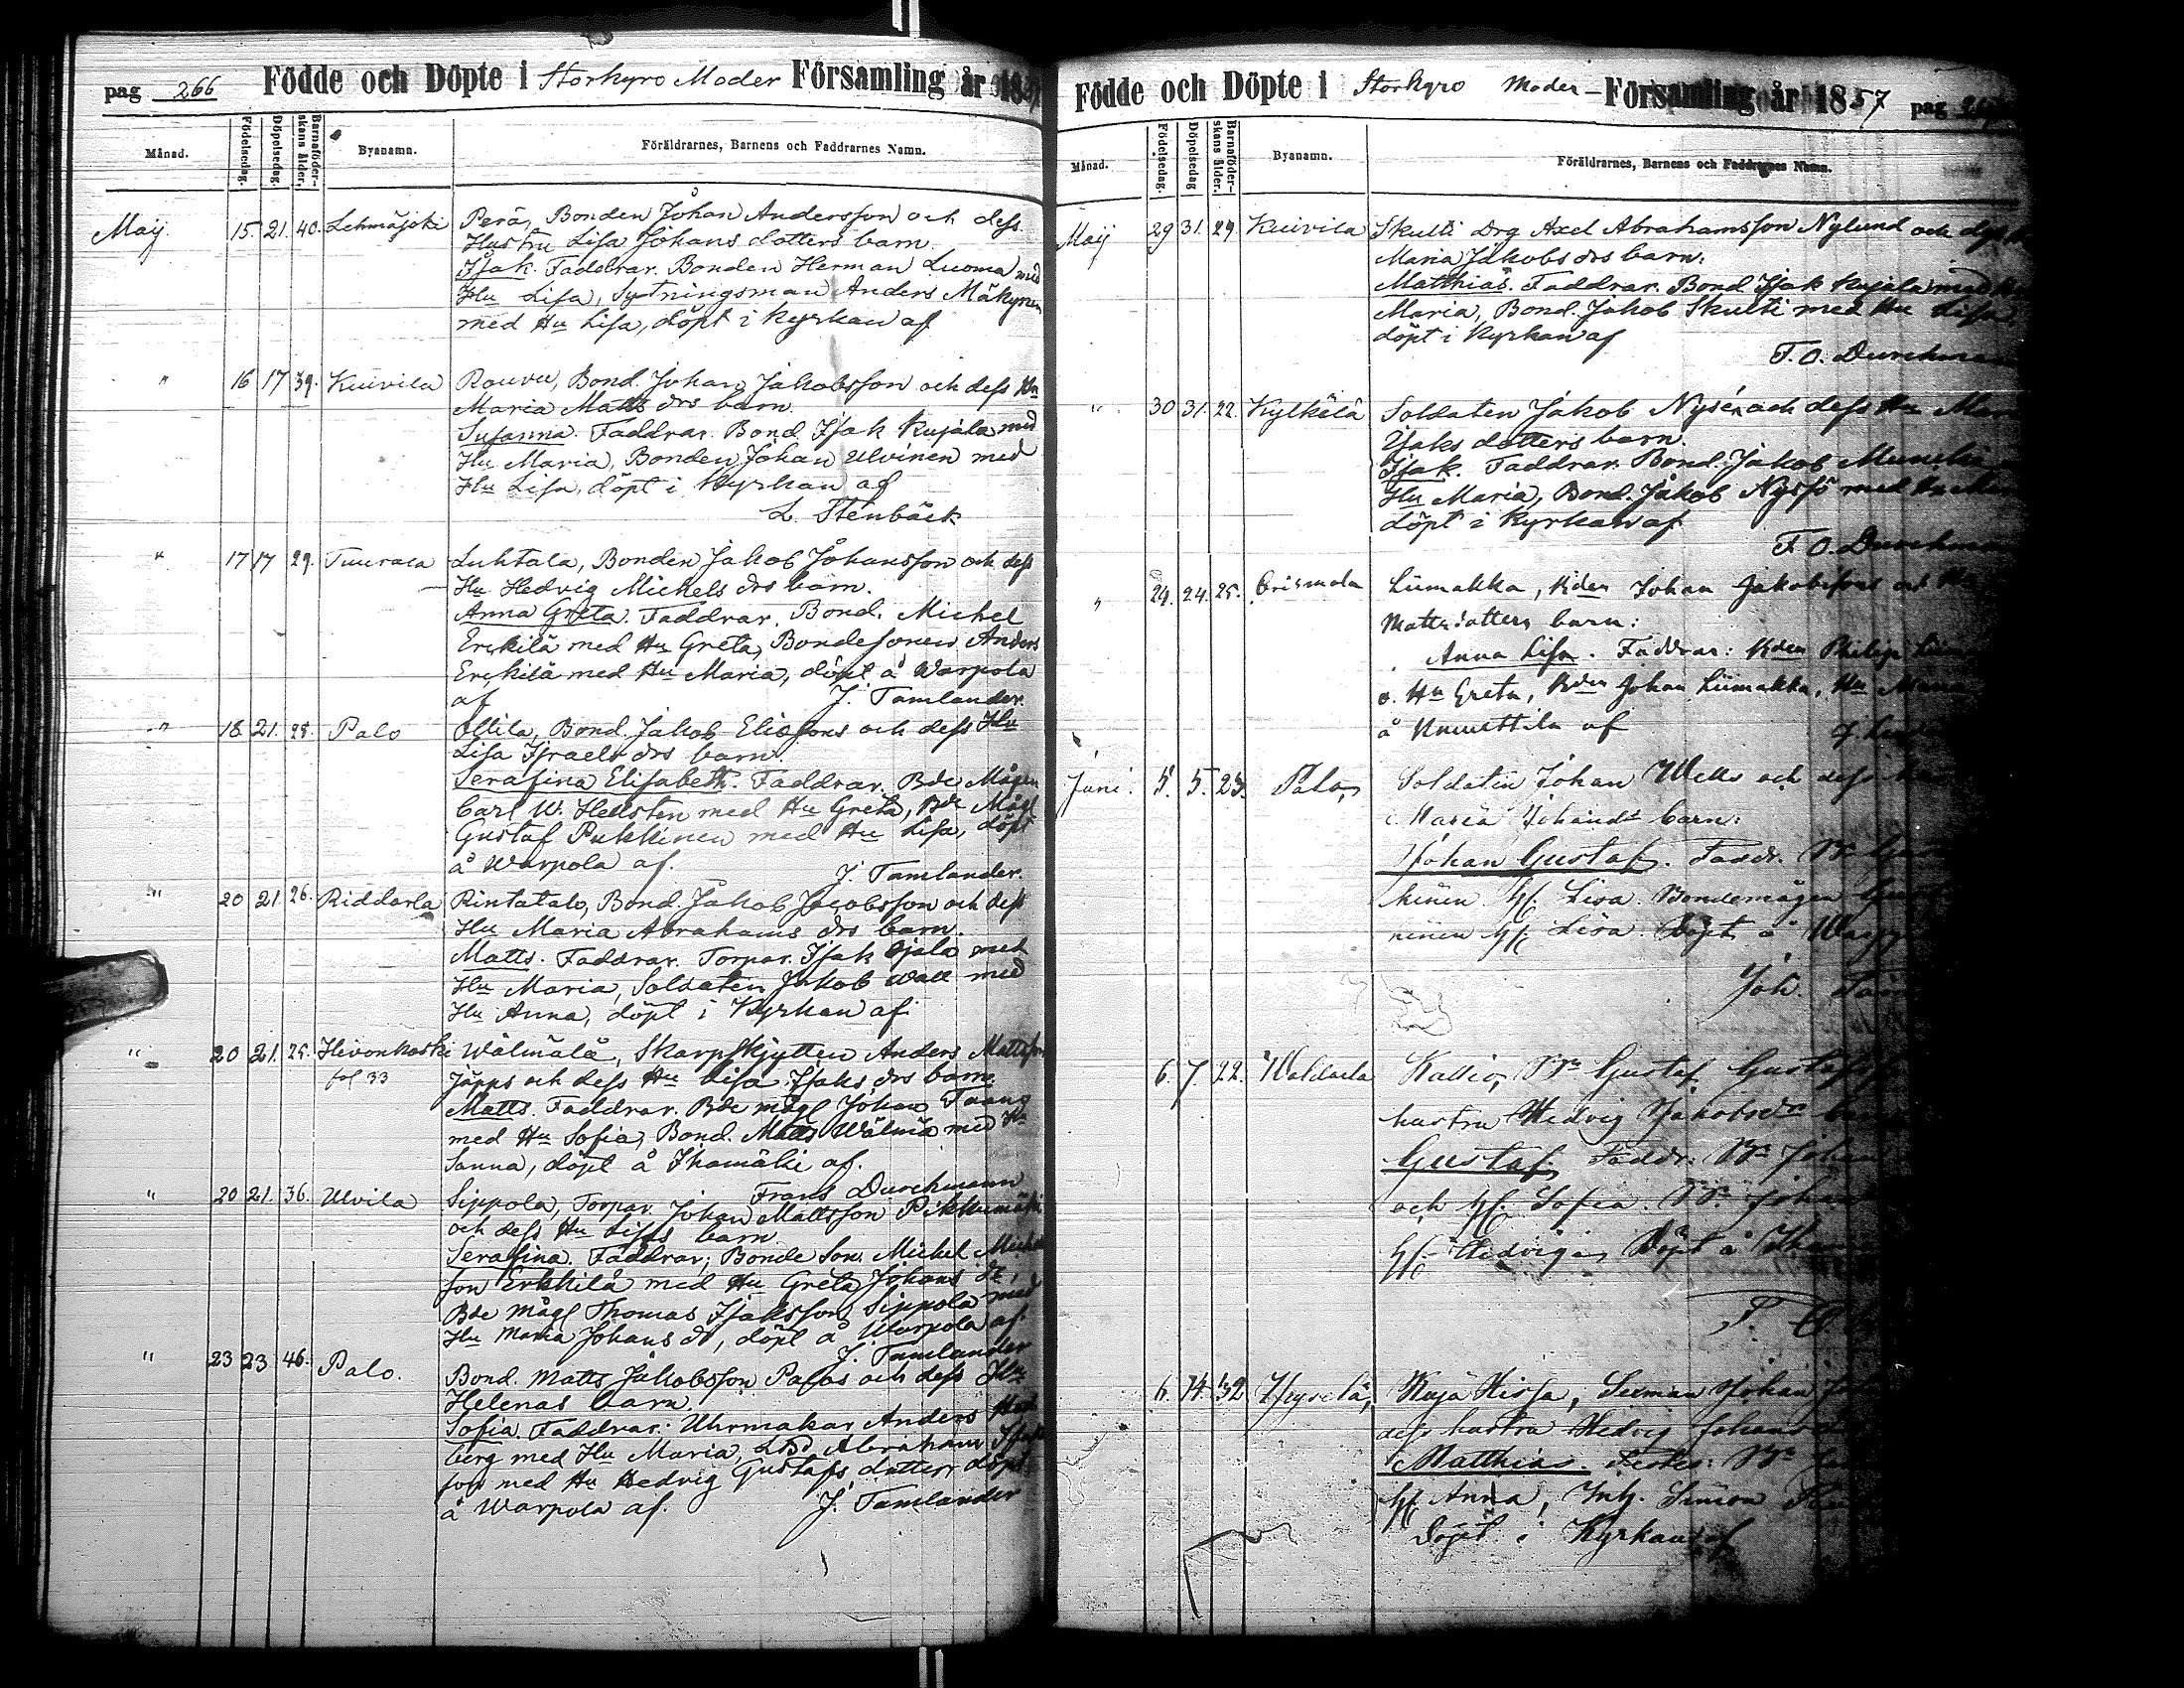 pag 266 Födde och Döpte i Storkyro Moder Församling år 1857
Månad. Födelsedag. Döpelsedag. Barnaföder-skans ålder. Byanamn. Föräldrarnes, Barnens och Faddrarnes Namn.
Maij. 15. 21. 40. Lehmäjoki Perä, Bonden Johan Andersson och dess
Hustru Lisa Johans dotters barn.
Isak. Faddrar. Bonden Herman Luoma med
Hu Lisa, Sytningsman Anders Mäkynen
med Hu Lisa, döpt i kyrkan af
" 16 17 39. Kuivila Rouvu, Bond. Johan Jakobsson och dess Hu
Maria Matts drs barn.
Susanna. Faddrar. Bond. Isak Kujala med
Hu Maria, Bonden Johan Ulvinen med
Hu Lisa, döpt i Kyrkan af
L. Stenbäck
" 17 17 29. Tuurala Luhtala, Bonden Jakob Johansson och dess
Hu Hedvig Michels drs barn.
Anna Greta. Faddrar. Bond. Michel
Erckilä med Hu Greta, Bondesonen Anders
Erckilä med Hu Maria, döpt å Warpola
af J. Tamlander.
" 18 21. 28. Palo Ollila, Bond. Jakob Eliasons och dess Hu
Lisa Israels drs barn.
Serafina Elisabeth. Faddrar. Bde Mågen
Carl W. Hellsten med Hu Greta, Bde Mågl
Gustaf Pukkinen med Hu Lisa, döpt
å Warpola af. J. Tamlander.
" 20 21. 26. Riddarla Rintatalo, Bond. Jakob Jacobsson och dess
Hu Maria Abrahams drs barn.
Matts. Faddrar. Torpar. Isak Ojala med
Hu Maria, Soldaten Jakob Wall med
Hu Anna, döpt i Kyrkan af
" 20 21. 25. Hevonkoski Wälmälä, Skarpskytten Anders Mattsson
fol 33 Jäpps och dess Hu Lisa Isaks drs barn.
Matts. Faddrar. Bde mågl Johan
med Hu Sofia, Bond. Matts Wälmä med Hu
Sanna, döpt å Ikamäki af.
Frans Durchmann
" 20 21. 36. Ulvila Sippola, Torpar. Johan Mattsson Pikkumäki
och dess Hu Lisas barn
Serafina. Faddrar; Bonde Son Michel Michel
son Erkkilä med Hu Greta Johans dr,
Bde Mågl Thomas Isaksson Sippola med
Hu Maria Johans dr, döpt å Warpola af
J. Tamlander
" 23 23 46. Palo. Bond. Matts Jakobsson Palos och dess Hu
Helenas barn.
Sofia. Faddrar: Uhrmakar Anders
berg med Hu Maria, Abraham Isak
son med Hu Hedvig Gustafs dotter döpt
å Warpola af. J. Tamlander
Födde och Döpte i Storkyro Moder-Församling år 1857 pag
Månad. Födelsedag. Döpelsedag Barnaföder-skans ålder. Byanamn. Föräldrarnes, Barnens och Faddrarnes Namn.
Maij 29 31. 29. Kuivila Skulti drg Axel Abrahamsson Nylund och dess
Maria Jakobs drs barn:
Matthias. Faddrar. Bond Isak Kujala med
Maria, Bond. Jakob Skulti med Hu Lisa,
döpt i Kyrkan af
F. O. Durchmann
" 30 31. 22. Kylkälä Soldaten Jakob Nysén och dess Hu
Isaks dotters barn.
Isak. Faddrar. Bond. Jakob
Hu Maria, Bond. Jakob Nyssö med Hu
döpt i Kyrkan af
F. O. Durchmann
" 24. 24. 25. Orismala Liimakka, Bden Johan Jakobssons och Hu
Mattsdotters barn:
Anna Lisa. Faddrar: Bden Philip
o. Hu Greta, Bden Johan Liimakka, Hu
å Knuuttila af
Juni. 5. 5. 23. Palo, Soldaten Johan Wells och dess
Maria Johansdr barn:
Johan Gustaf. Faddr. Bn
kinen hf. Lisa. Bondemågen
ninen hf. Lisa. Döpt å
Joh.
6. 7. 22. Waldarla Kallio, Bn Gustaf Gustafs
hustru Hedvig Jakobsdr
Gustaf. Faddr: Bn Johan
och hf. Sofia. Bn Johan
hf. Hedvig. Döpt å
6. 14. 32 Hyyriä,
dess hustru Hedvig Johans
Matthias. Testes: Bn
hf. Anna, Inh. Simon
Döpt i Kyrkan af